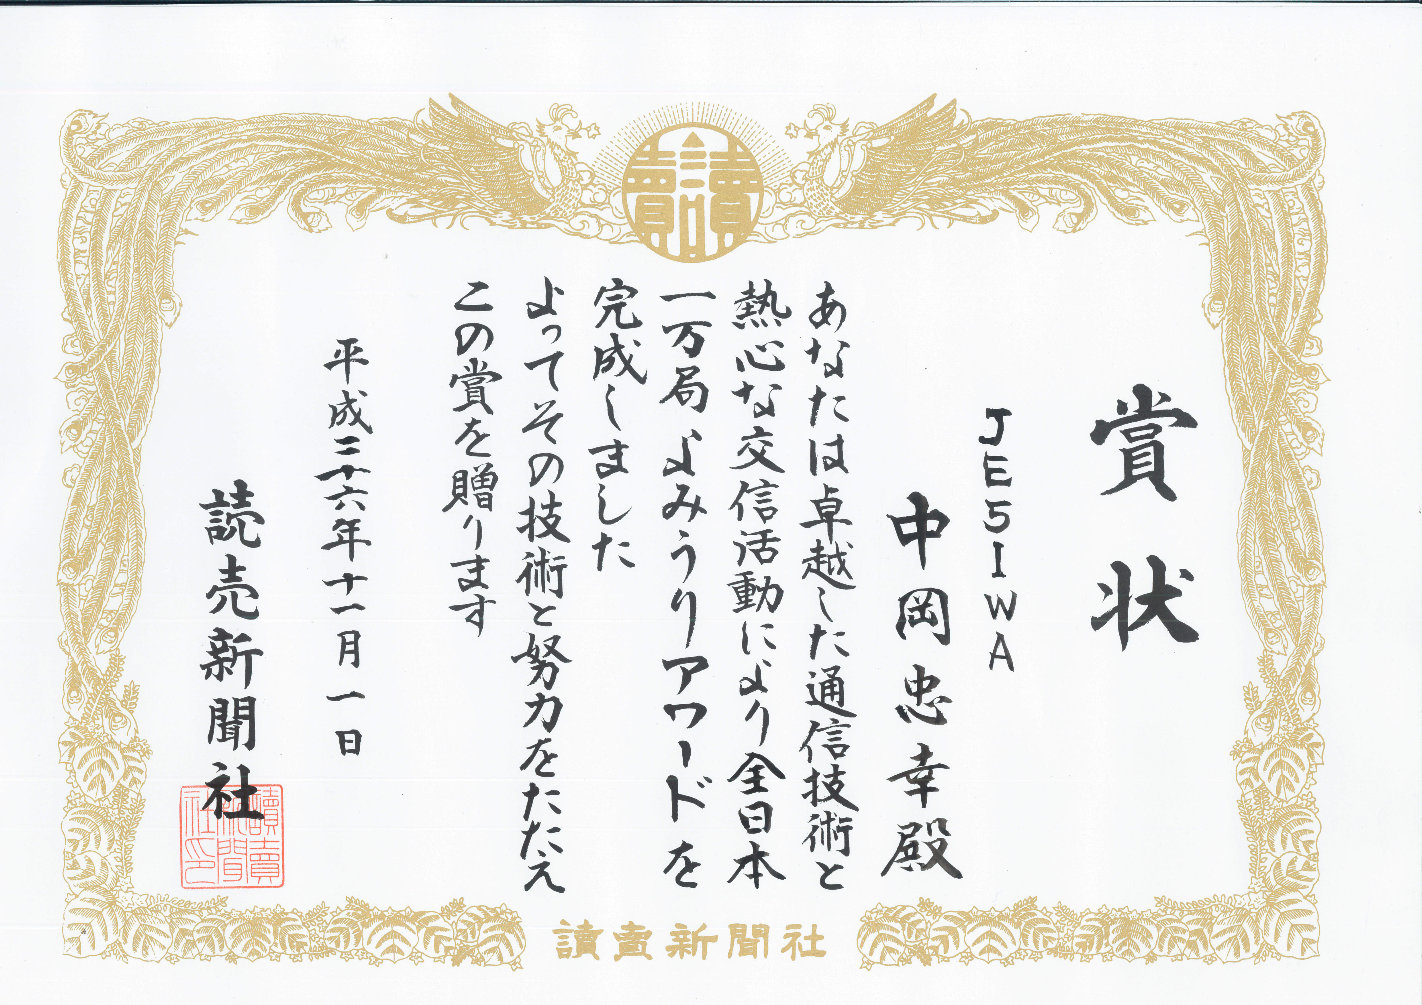 讀賣
賞状
JE5IWA
中岡忠幸殿
あなたは卓越した通信技術と
熱心な交信活動により全日本
一万局よみうりアワードを
完成しました
よってその技術と努力をたたえ
この賞を贈ります
平成二十六年十一月一日
読売新聞社
讀賣新聞社印
讀賣新聞社